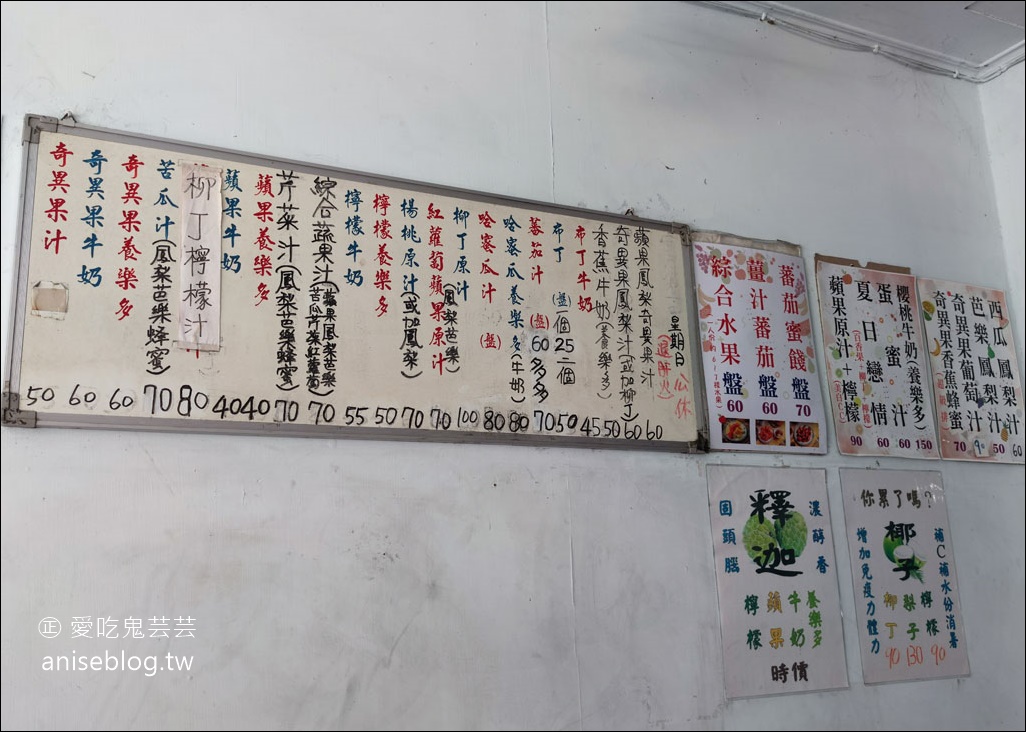 奇異果汁 50
奇異果牛奶 60
奇異果養樂多 60
苦瓜汁(鳳梨芭樂蜂蜜) 70
柳丁檸檬汁 80
蘋果牛奶 40
蘋果養樂多 40
芹菜汁(鳳梨芭樂蜂蜜) 70
綜合蔬果汁 70
檸檬牛奶 55
檸檬養樂多 50
楊桃原汁(或加鳳梨) 70
紅蘿蔔蘋果原汁(鳳梨芭樂) 70
柳丁原汁 100
哈密瓜汁(盤) 80
哈密瓜養樂多(牛奶) 80
蕃茄汁(盤)60 70
布丁(盤)一個25二個 50
布丁牛奶 45
香蕉牛奶(養樂多) 50
奇異果鳳梨汁(或加柳丁) 60
蘋果鳳梨奇異果汁 60
星期日公休
綜合水果盤 60
薑汁蕃茄盤 60
蕃茄蜜餞盤 70
蘋果原汁+檸檬 90
夏日戀情 60
蛋蜜汁 60
櫻桃牛奶(養樂多) 150
奇異果香蕉蜂蜜 70
奇異果葡萄汁
芭樂鳳梨汁 50
西瓜鳳梨汁 60
固頭腦
釋迦
濃醇香
檸檬
蘋果
牛奶
養樂多
時價
你累了嗎?
增加免疫力體力
椰子
補C補水份消暑
柳丁 90
梨子 130
檸檬 90
㊣ 愛吃鬼芸芸
aniseblog.tw